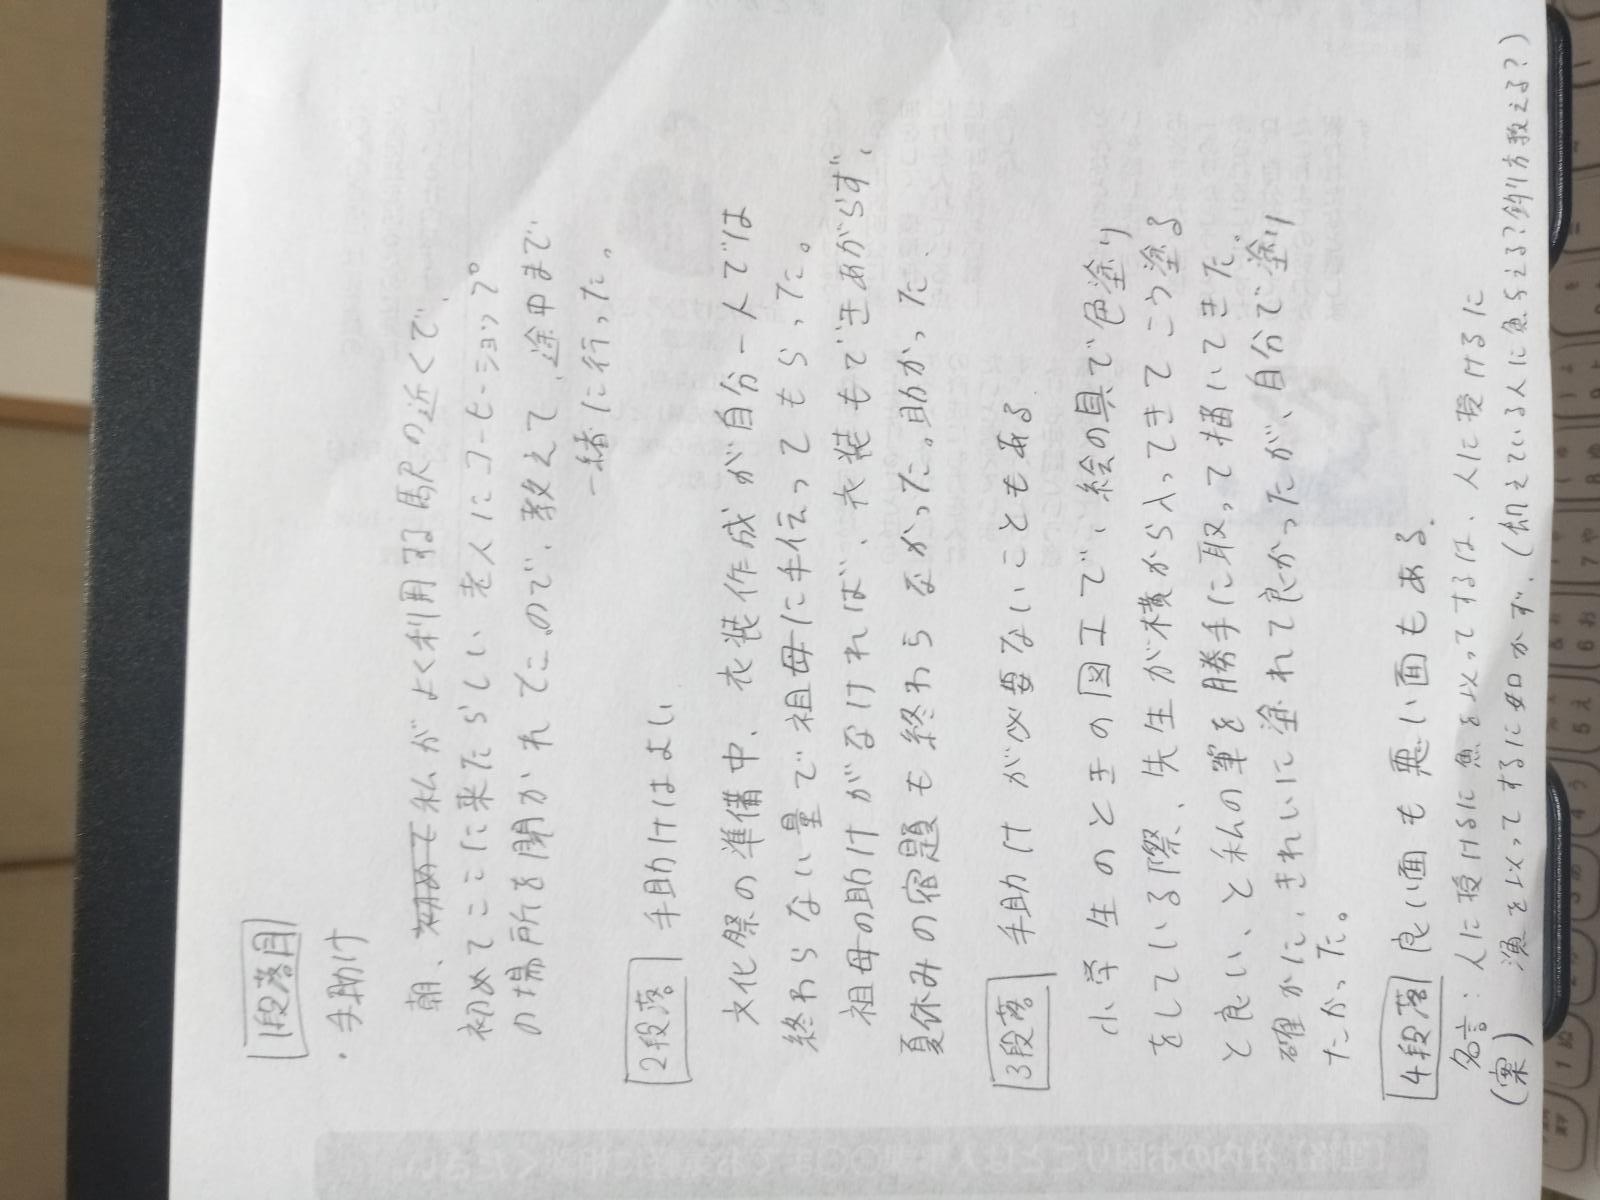 1段落目
・手助け
朝、初めて私がよく利用する駅の近くで、
初めてここに来たらしい老人にコーヒーショップ
の場所を聞かれてこ、ので、教えて、途中まで
一緒に行った。
2段落 手助けはよい
文化祭の準備中、衣装作成が自分一人では
終わらない量で祖母に手伝ってもらった。
祖母の助けがなければ、衣装もできあがらず、
夏休みの宿題も終わらなかった。助かった。
3段落 手助けが必要ないこともある。
小学生のときの図工で、絵の具で色塗り
をしている際、先生が横から入ってきてこう塗る
と良い、と私の筆を勝手に取って描いてきた。
確かに、きれいに塗れて良かったが、自分で塗り
たかった。
4段落 良い面も悪い面もある。
名言:人に授けるに魚を以ってするは、人に授けるに
(案) 漁を以ってするに如かず。(飢えている人に魚与える?釣り方教える?)